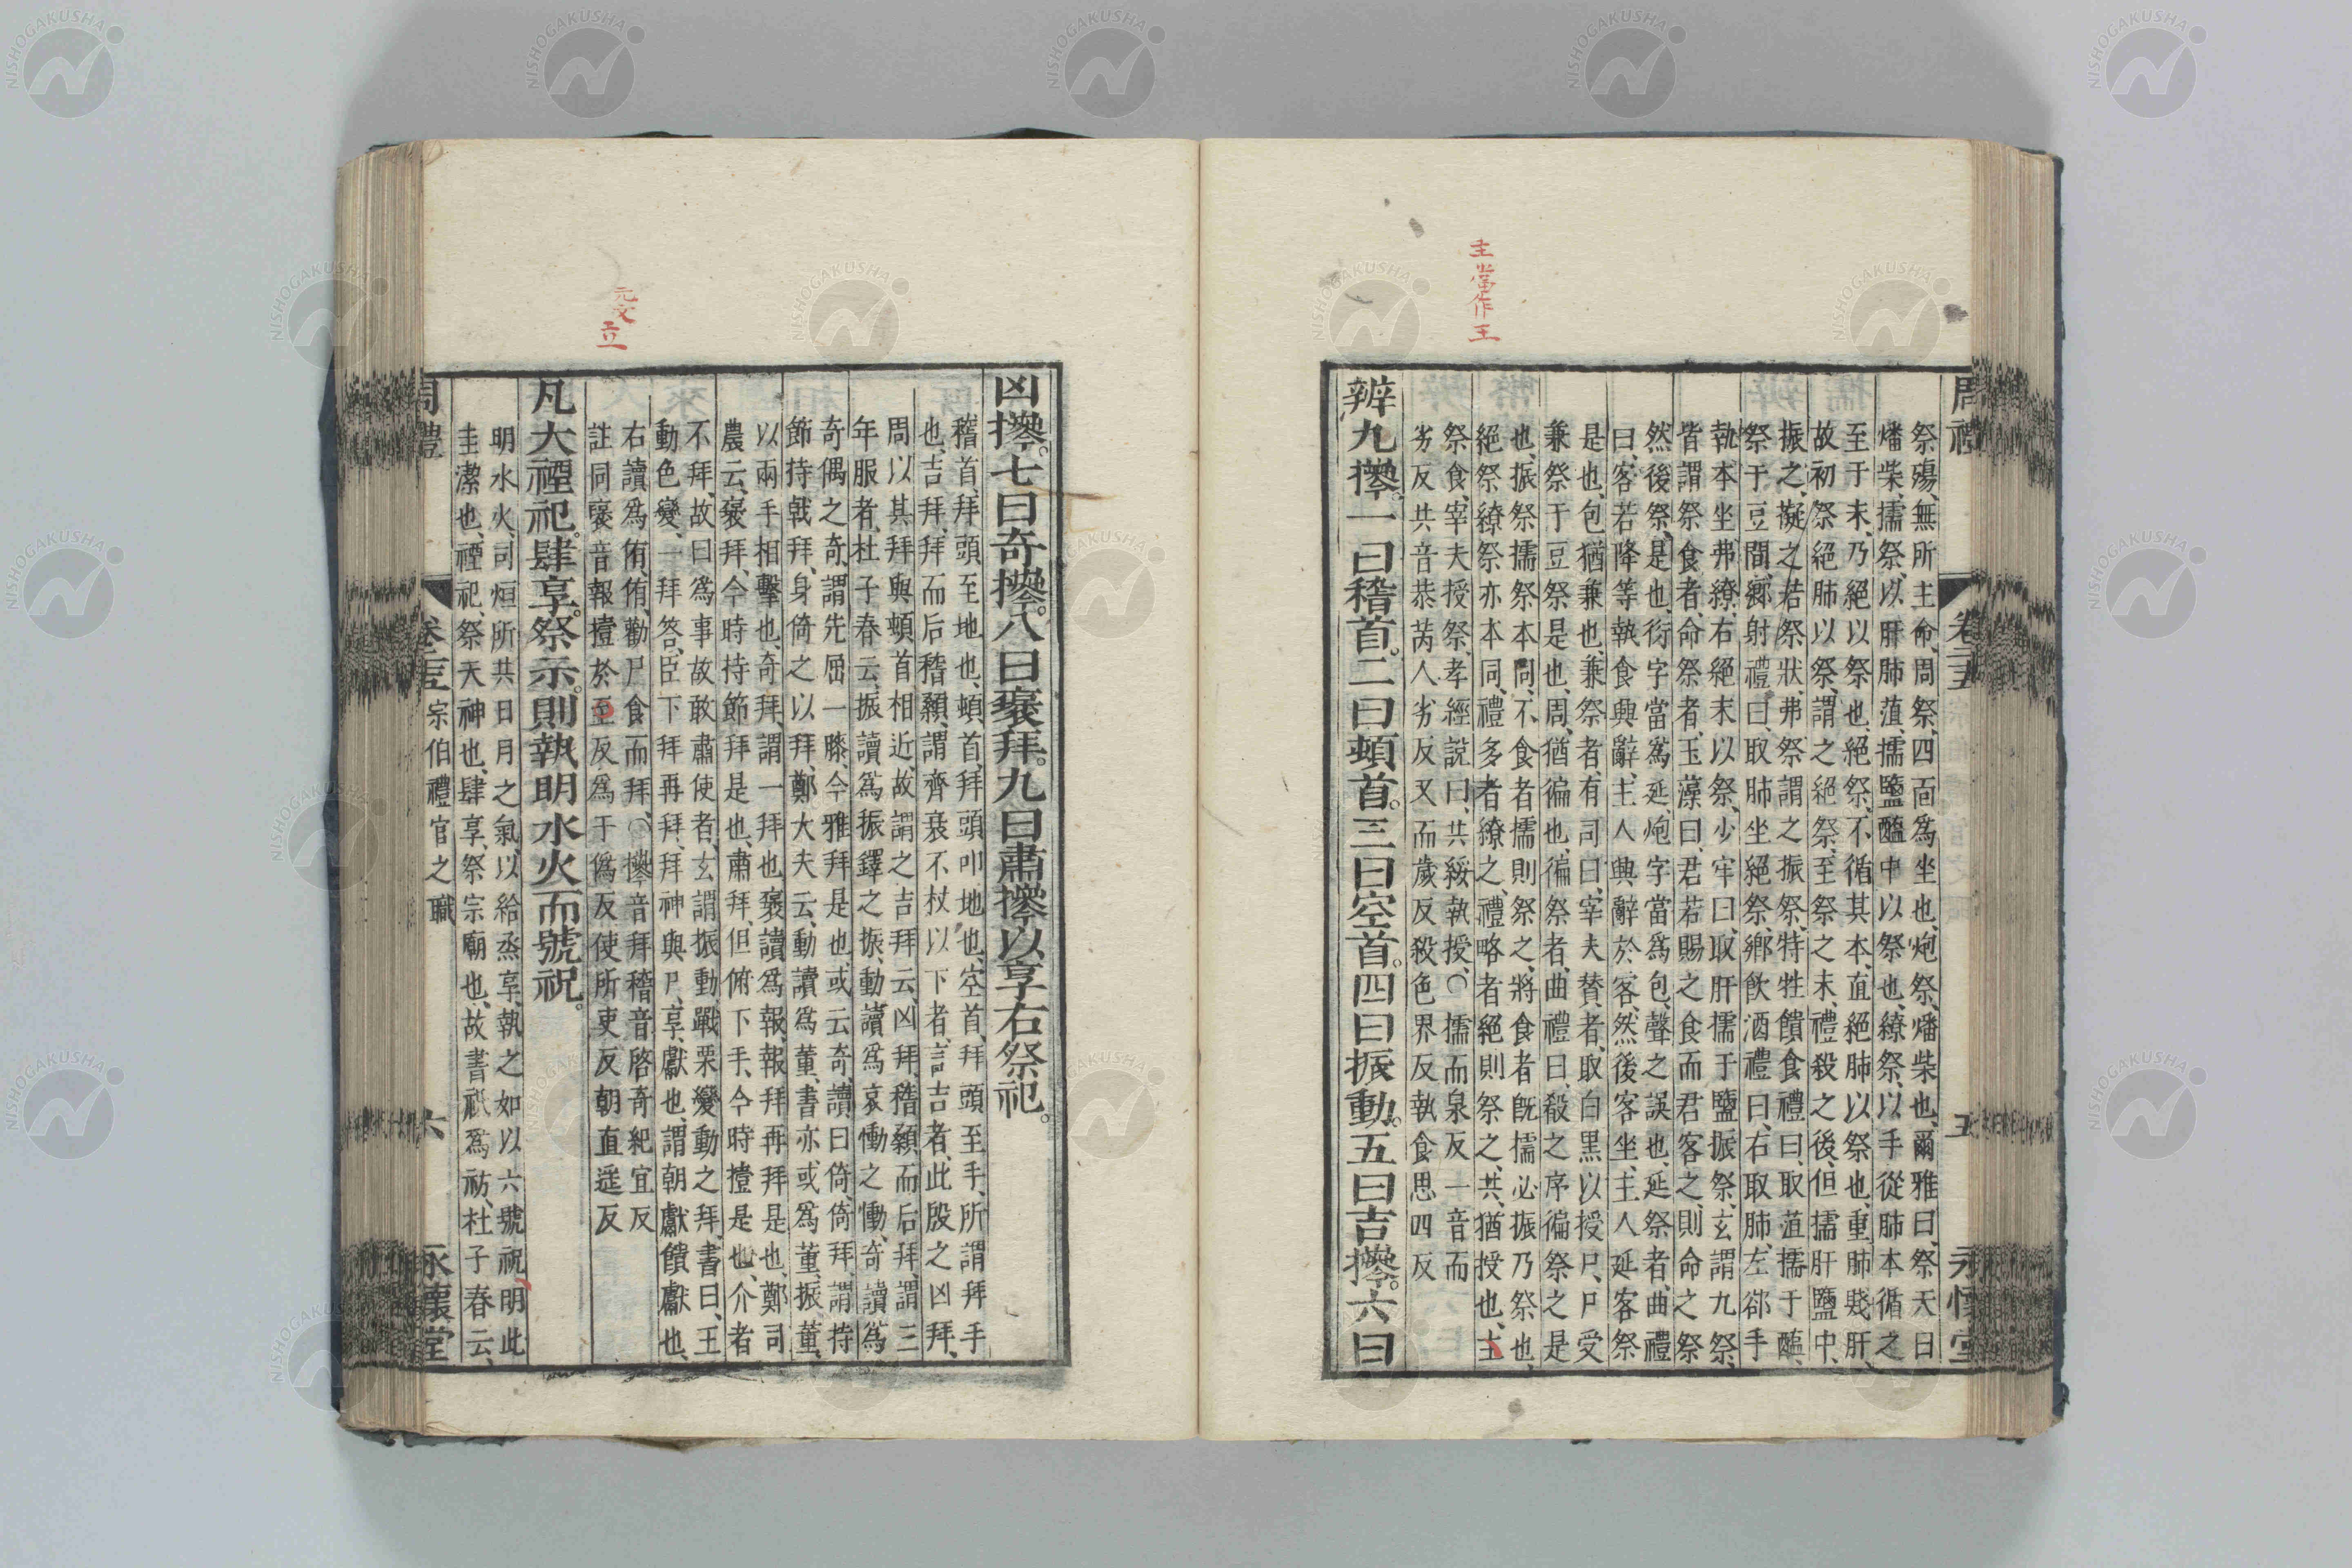 主當作王
周禮
卷二十五
五
永懷堂
祭殤、無所主命、周祭、四面爲坐也、炮祭、燔柴也、爾雅曰、祭天曰
燔柴、擩祭、以肝肺菹、擩鹽醢中以祭也、繚祭、以手從肺本循之
至于末、乃絕以祭也、絕祭、不循其本、直絕肺以祭也、重肺賤肝、
故初祭絕肺以祭、謂之絕祭、至祭之末、禮殺之後、但擩肝鹽中、
振之、擬之若祭狀、弗祭、謂之振祭、特牲饋食禮曰、取菹擩于醢、
祭于豆間、鄉射禮曰、取肺坐絕祭、鄉飲酒禮曰、右取肺、左郤手
執本坐、弗繚、右絕末以祭、少牢曰、取肝擩于鹽振祭、玄謂九祭、
皆謂祭食者、命祭者、玉藻曰、君若賜之食而君客之、則命之祭
然後祭、是也、衍字當爲延、炮字當爲包、聲之誤也、延祭者、曲禮
曰、客若降等執食興辭、主人興辭於客、然後客坐、主人延客祭
是也、包猶兼也、兼祭者、有司曰、宰夫贊者、取白黑以授尸、尸受
兼祭于豆祭是也、周、猶徧也、徧祭者、曲禮曰、殺之序徧祭之是
也、振祭擩祭本同、不食者擩則祭之、將食者旣擩必振乃祭也、
絕祭繚祭亦本同、禮多者繚之、禮略者絕則祭之、共、猶授也、主
祭食、宰夫授祭、孝經說曰、共綏執授、○擩而泉反一音而
劣反共音恭芮人劣反又而歲反殺色界反執食思四反
辨九𢷎。一曰稽首。二曰頓首。三曰空首。四曰振動。五曰吉𢷎。六曰
元文
立
凶𢷎。七曰奇𢷎。八曰襃拜。九曰肅𢷎以享右祭祀。
稽首、拜、頭至地也、頓首、拜頭叩地也、空首、拜頭至手、所謂拜手
也、吉拜、拜而后稽顙、謂齊衰不杖以下者、言吉者、此殷之凶拜、
周以其拜與頓首相近、故謂之吉拜云、凶拜、稽顙而后拜、謂三
年服者、杜子春云、振讀爲振鐸之振、動讀爲哀慟之慟、奇讀爲
奇偶之奇、謂先屈一膝、今雅拜是也、或云奇、讀曰倚、倚拜、謂持
節持戟拜、身倚之以拜、鄭大夫云、動讀爲董、書亦或爲董、振董、
以兩手相擊也、奇拜、謂一拜也、襃讀爲報、報拜再拜是也、鄭司
農云、襃拜、今時持節拜是也、肅拜、但俯下手、今時撎是也、介者
不拜、故曰爲事故敢肅使者、玄謂振動、戰栗變動之拜、書曰、王
動色變、一拜答、臣下拜再拜、拜神與尸、享、獻也、謂朝獻饋獻也、
右讀爲侑、侑、勸尸食而拜、○𢷎音拜稽音啓奇紀宜反
註同襃音報撎於至反爲于僞反使所吏反朝直遥反
凡大禋祀。肆享。祭示。則執明水火而號祝。
明水火、司烜所共日月之氣、以給烝享、執之如以六號祝、明此
圭潔也、禋祀、祭天神也、肆享、祭宗廟也、故書祇爲祊、杜子春云、
周禮
卷二十五 宗伯禮官之職
六
永懷堂